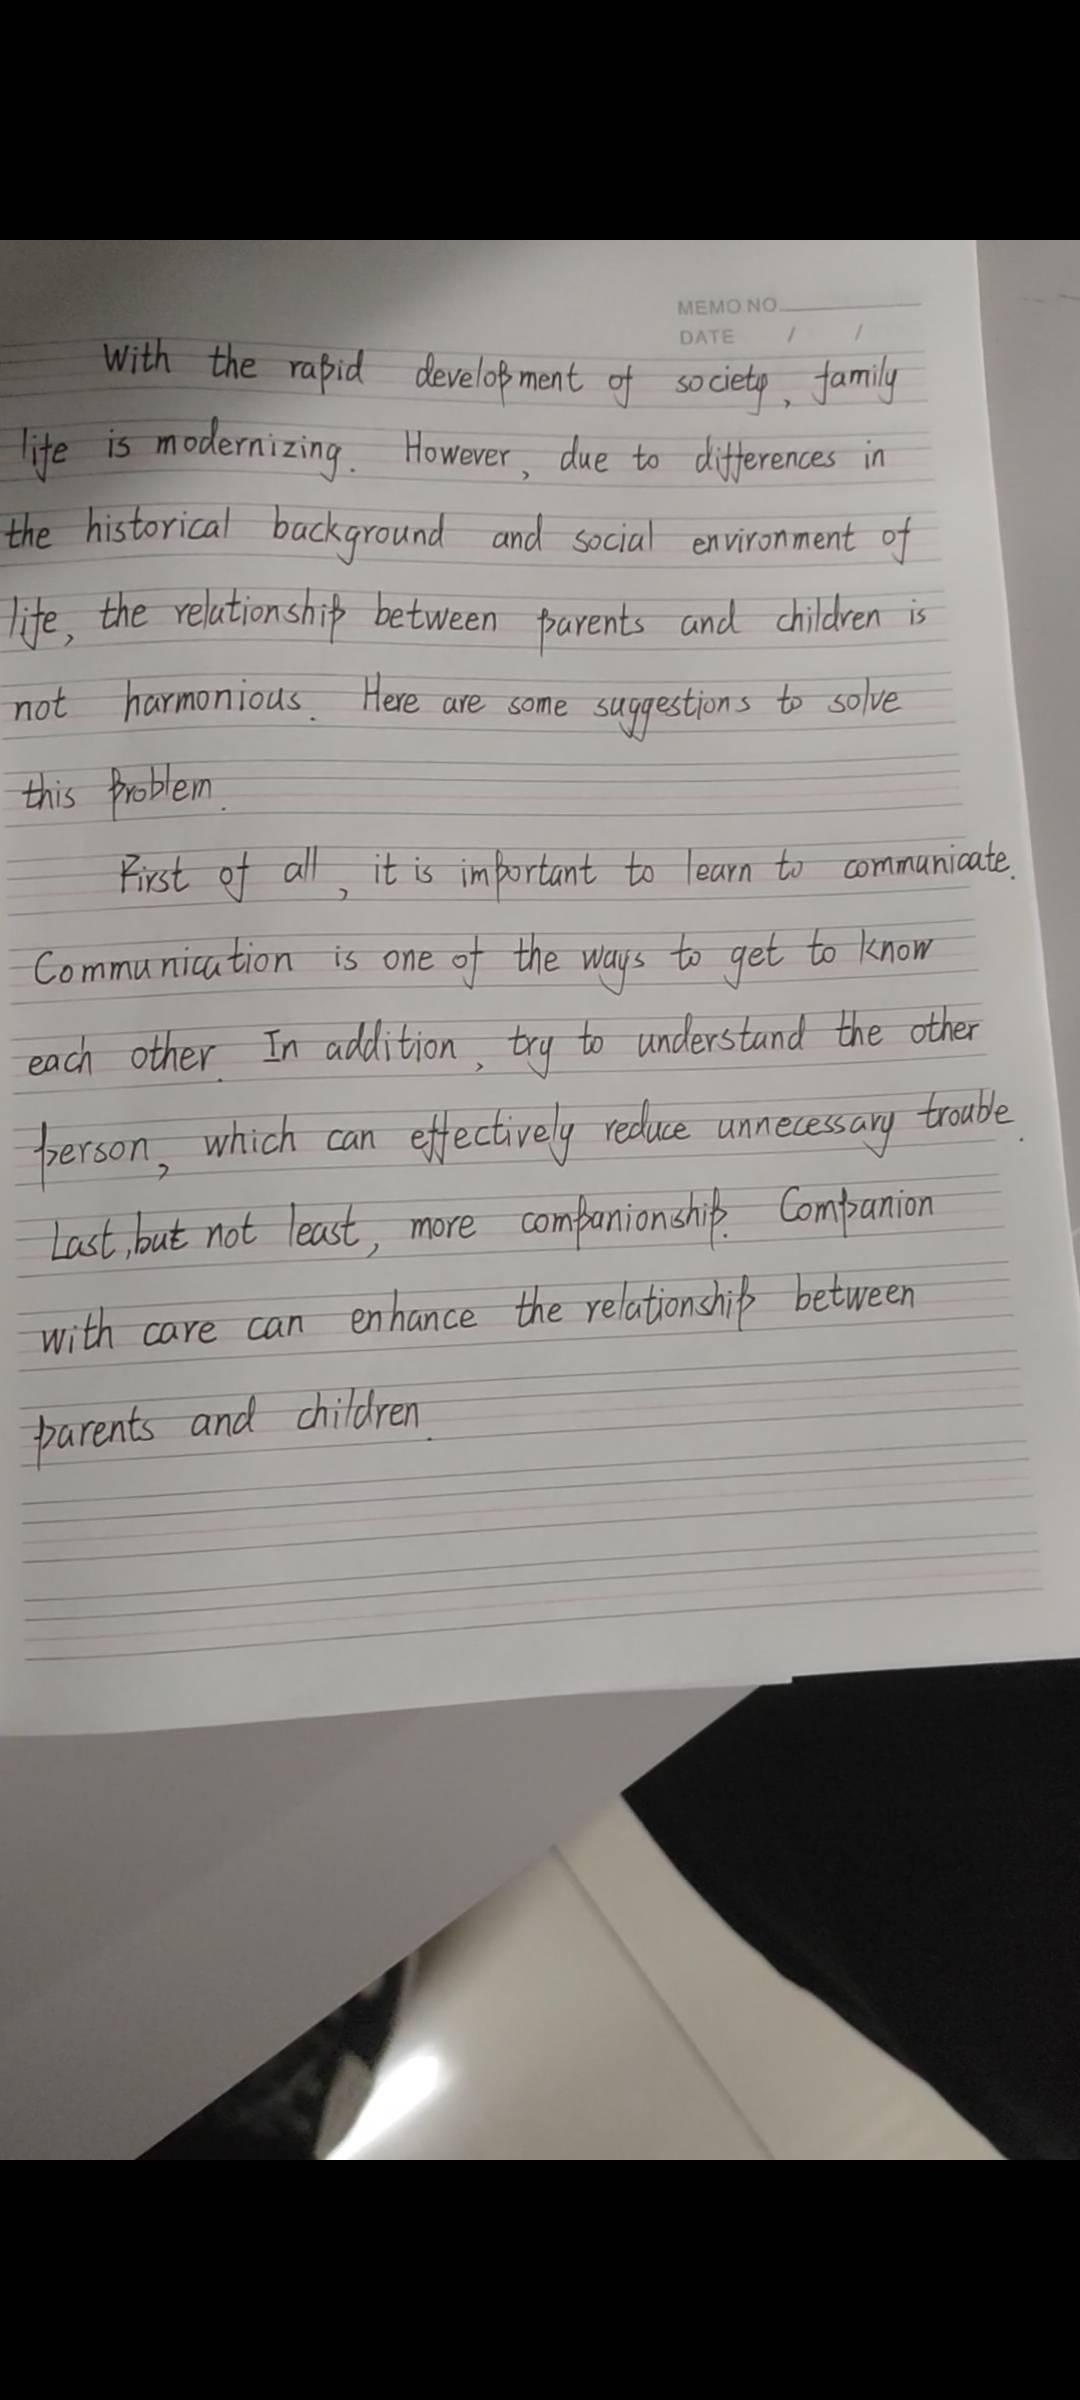 MEMO NO
DATE / /
With the rapid development of society, family
life is modernizing. However, due to differences in
the historical background and social environment of
life, the relationship between parents and children is
not harmonious. Here are some suggestions to solve
this problem.
First of all, it is important to learn to communicate.
Communication is one of the ways to get to know
each other. In addition, try to understand the other
person, which can effectively reduce unnecessary trouble.
Last, but not least, more companionship. Companion
with care can enhance the relationship between
parents and children.